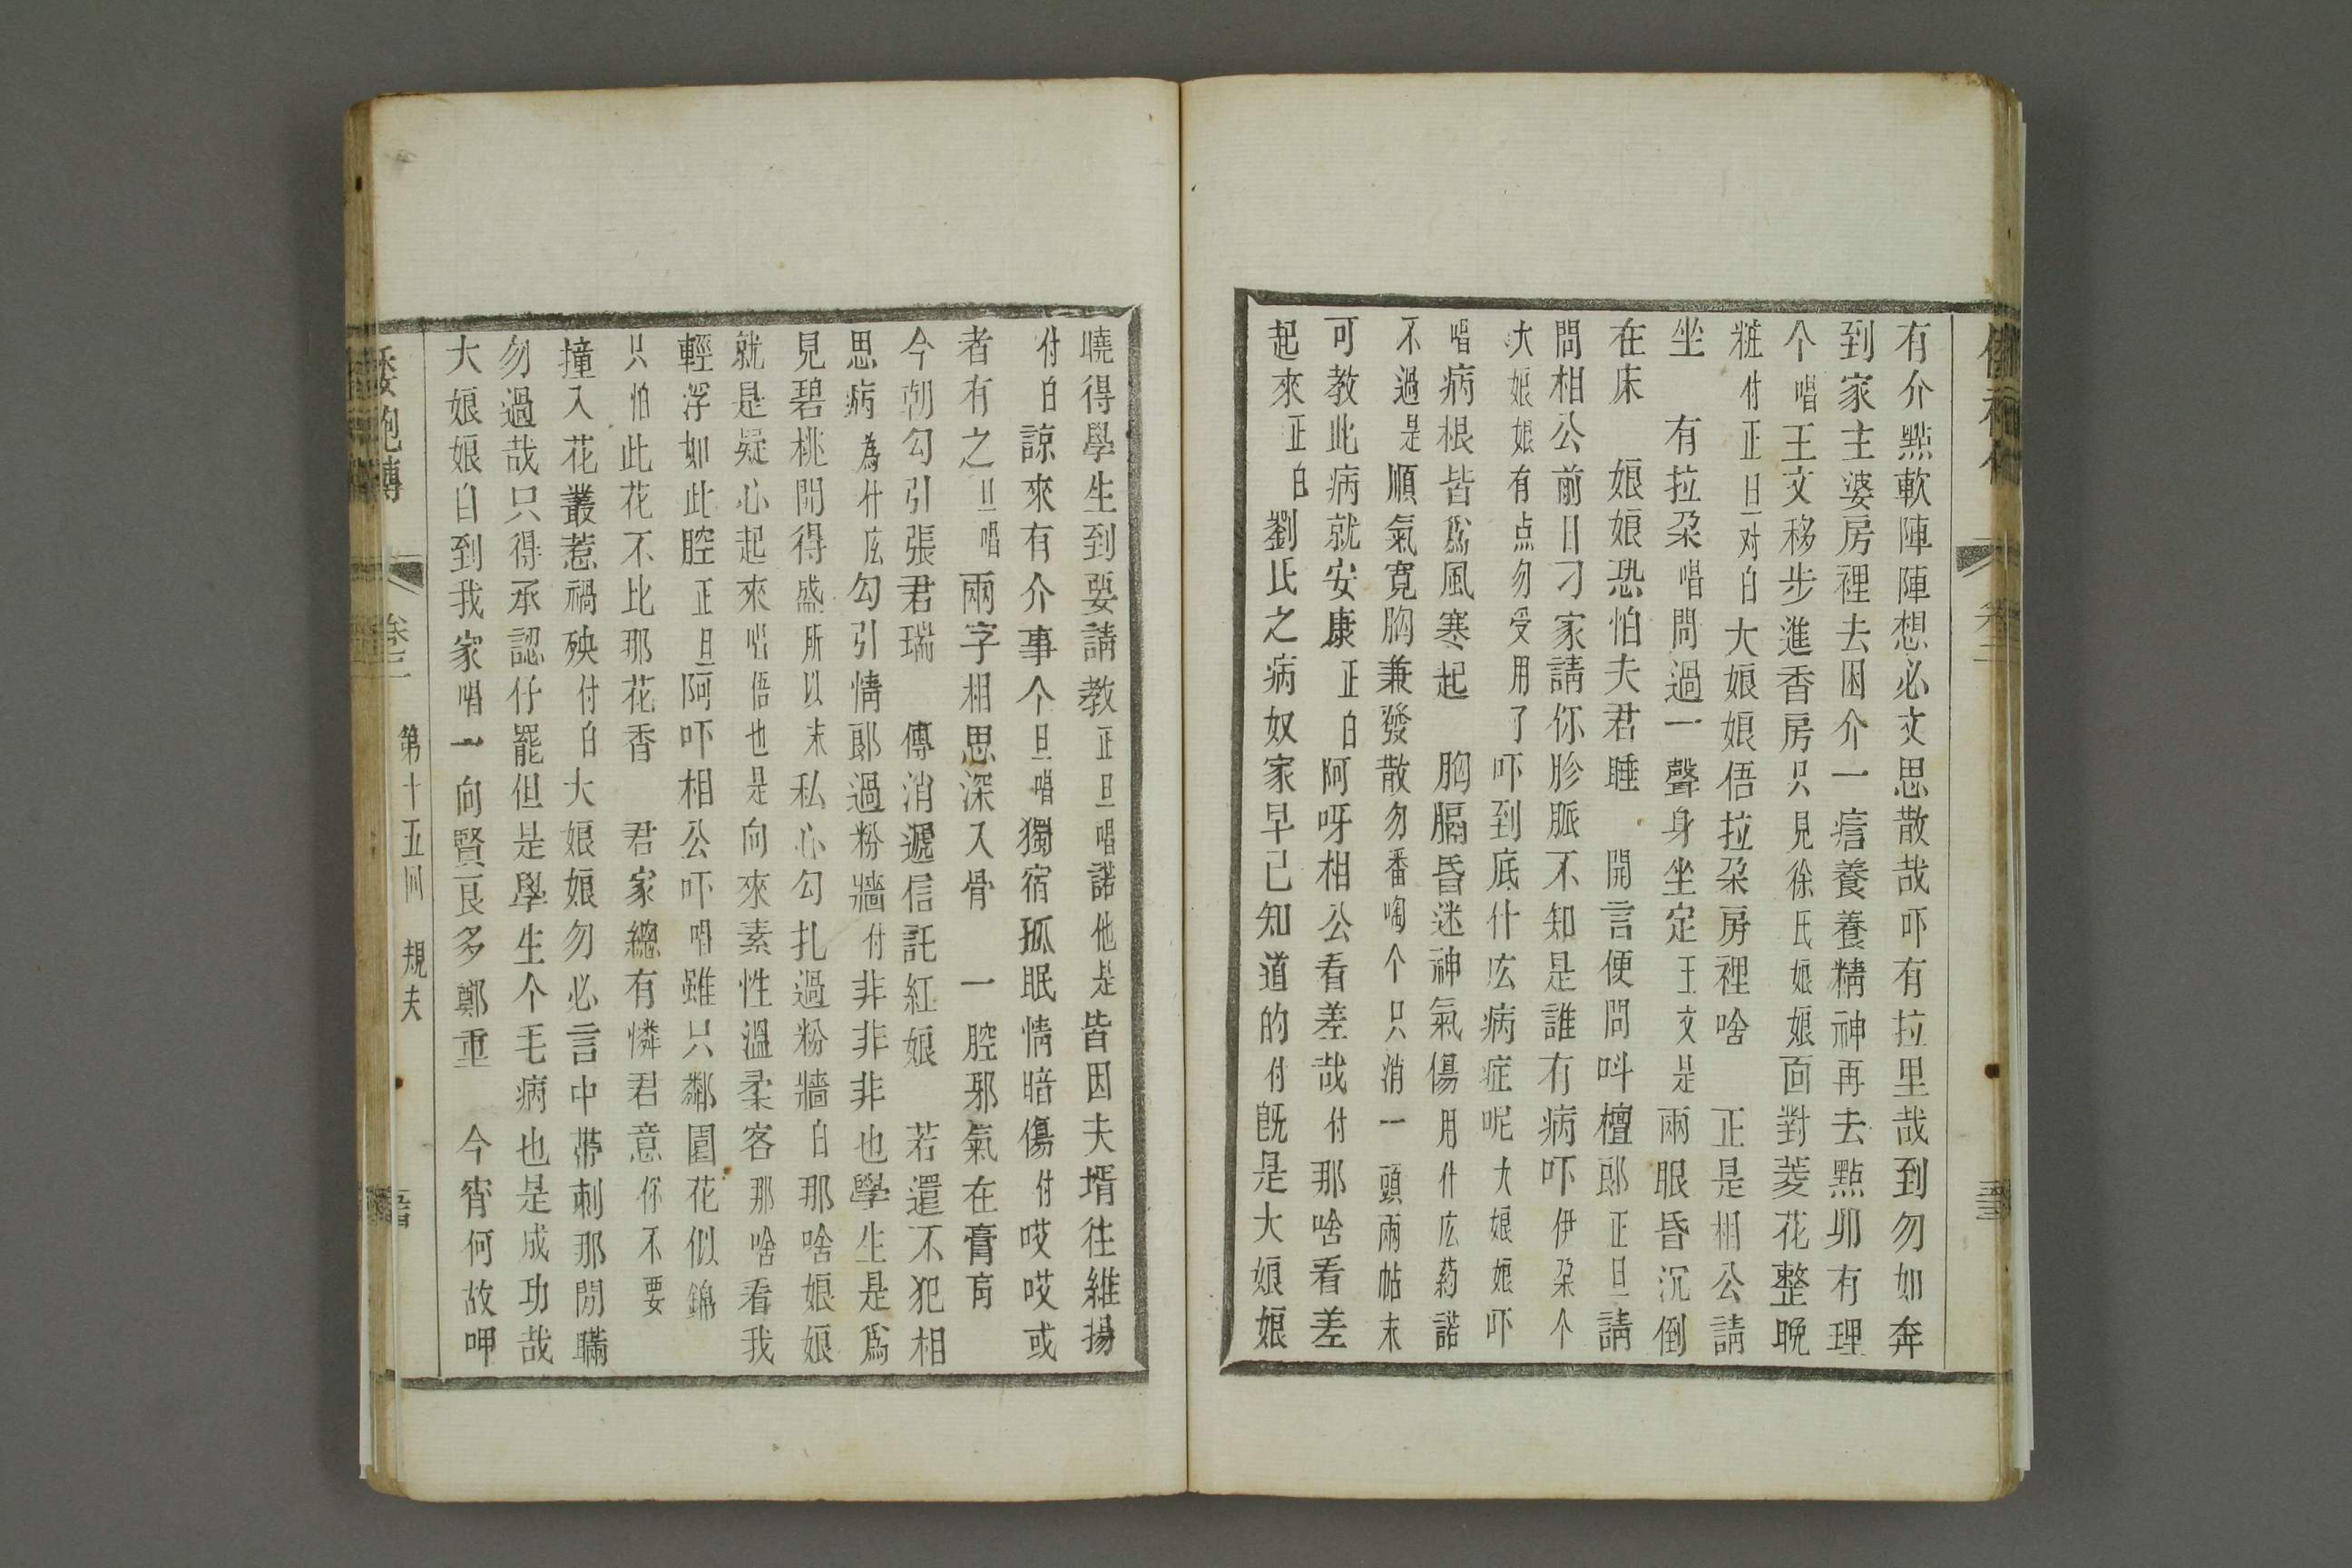 有介點軟陣陣想必文思散哉吓有拉里哉到勿如奔
到家主婆房裡去困介一瘔養養精神再去點卯有理
个唱王文移步進香房只見徐氏娘娘面對菱花整晚
粧付正旦对白大娘娘俉拉朶房裡啥 正是相公請
坐 有拉朶唱問過一聲身坐定王文是兩眼昏沉倒
在床 娘娘恐怕夫君睡 開言便問呌檀郎正旦請
問相公前日刁家請你胗脈不知是誰有病吓伊朶个
大娘娘有点勿受用了 吓到底什庅病症呢大娘娘吓
唱病根皆爲風寒起 胸膈昏迷神氣傷用什庅葯諾
不過是順氣寬胸兼發散勿番啕个只消一頭兩帖末
可教此病就安康正白阿呀相公看差哉付那啥看差
起來正白劉氏之病奴家早已知道的付旣是大娘娘
曉得學生到要請教正旦唱諾他是皆因夫壻往維揚
付白諒來有介事个旦唱獨宿孤眠情暗傷付哎哎或
者有之旦唱兩字相思深入骨 一腔邪氣在膏肓
今朝勾引張君瑞 傳消遞信託紅娘 若還不犯相
思病為什庅勾引情郎過粉牆付非非非也學生是爲
見碧桃開得盛所以末私心勾扎過粉牆白那啥娘娘
就是疑心起來唱俉也是向來素性溫柔客那啥看我
輕浮如此腔正旦阿吓相公吓唱雖只鄰園花似錦
只怕此花不比那花香 君家總有憐君意你不要
撞入花叢惹禍殃付白大娘娘勿必言中帶刺那閒瞞
勿過哉只得承認仔罷但是學生个毛病也是成功哉
大娘娘白到我家唱一向賢良多鄭重 今宵何故呷
倭袍傳 卷二 第十五回 規夫